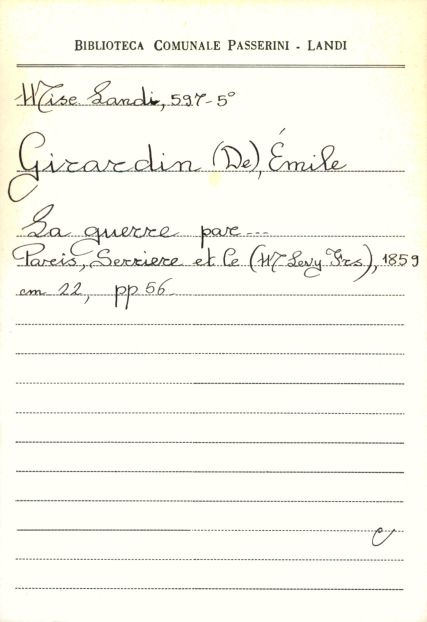 BIBLIOTECA COMUNALE PASSERINI - LANDI
Misc. Landi, 597-5°
Girardin (De), Émile
La guerre par ---
Pareis, Serriere et Ce (M Levy Frs), 1859
cm 22, pp 56
C